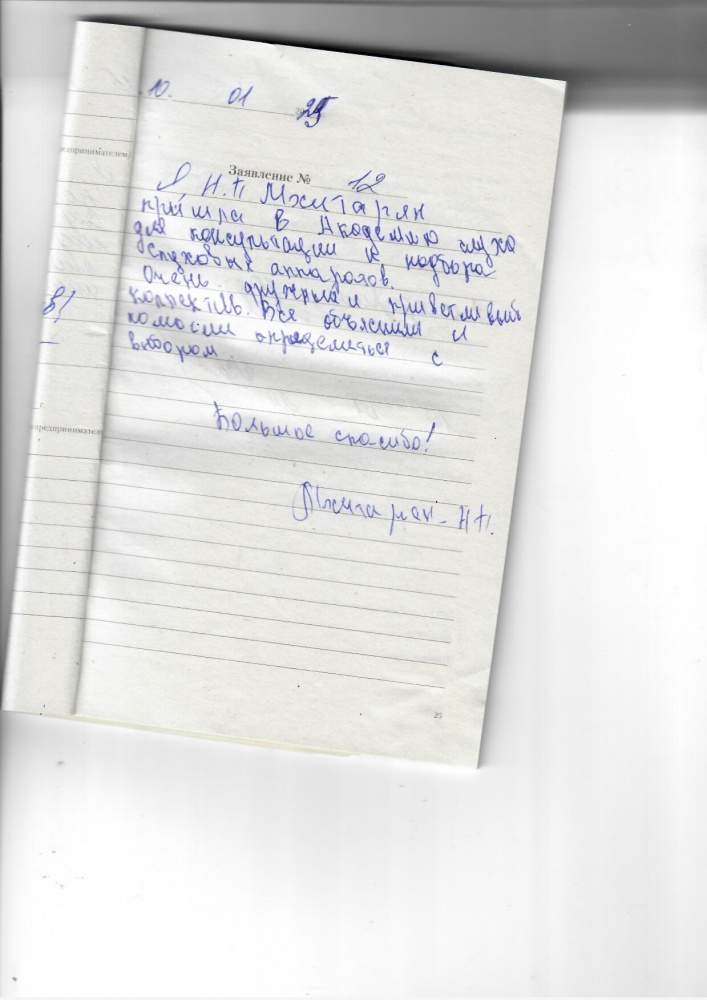 10. 01 25
Заявление № 12
Я, Н.П Мхитарян
пришла в Академию слуха
для консультации и подбора
слуховых аппаратов.
Очень дружный и приветливый
коллектив. Все объяснили и
помогли определиться с
выбором.
Большое спасибо!
Мхитарян Н П.
предпринимателем
в!
г.
25